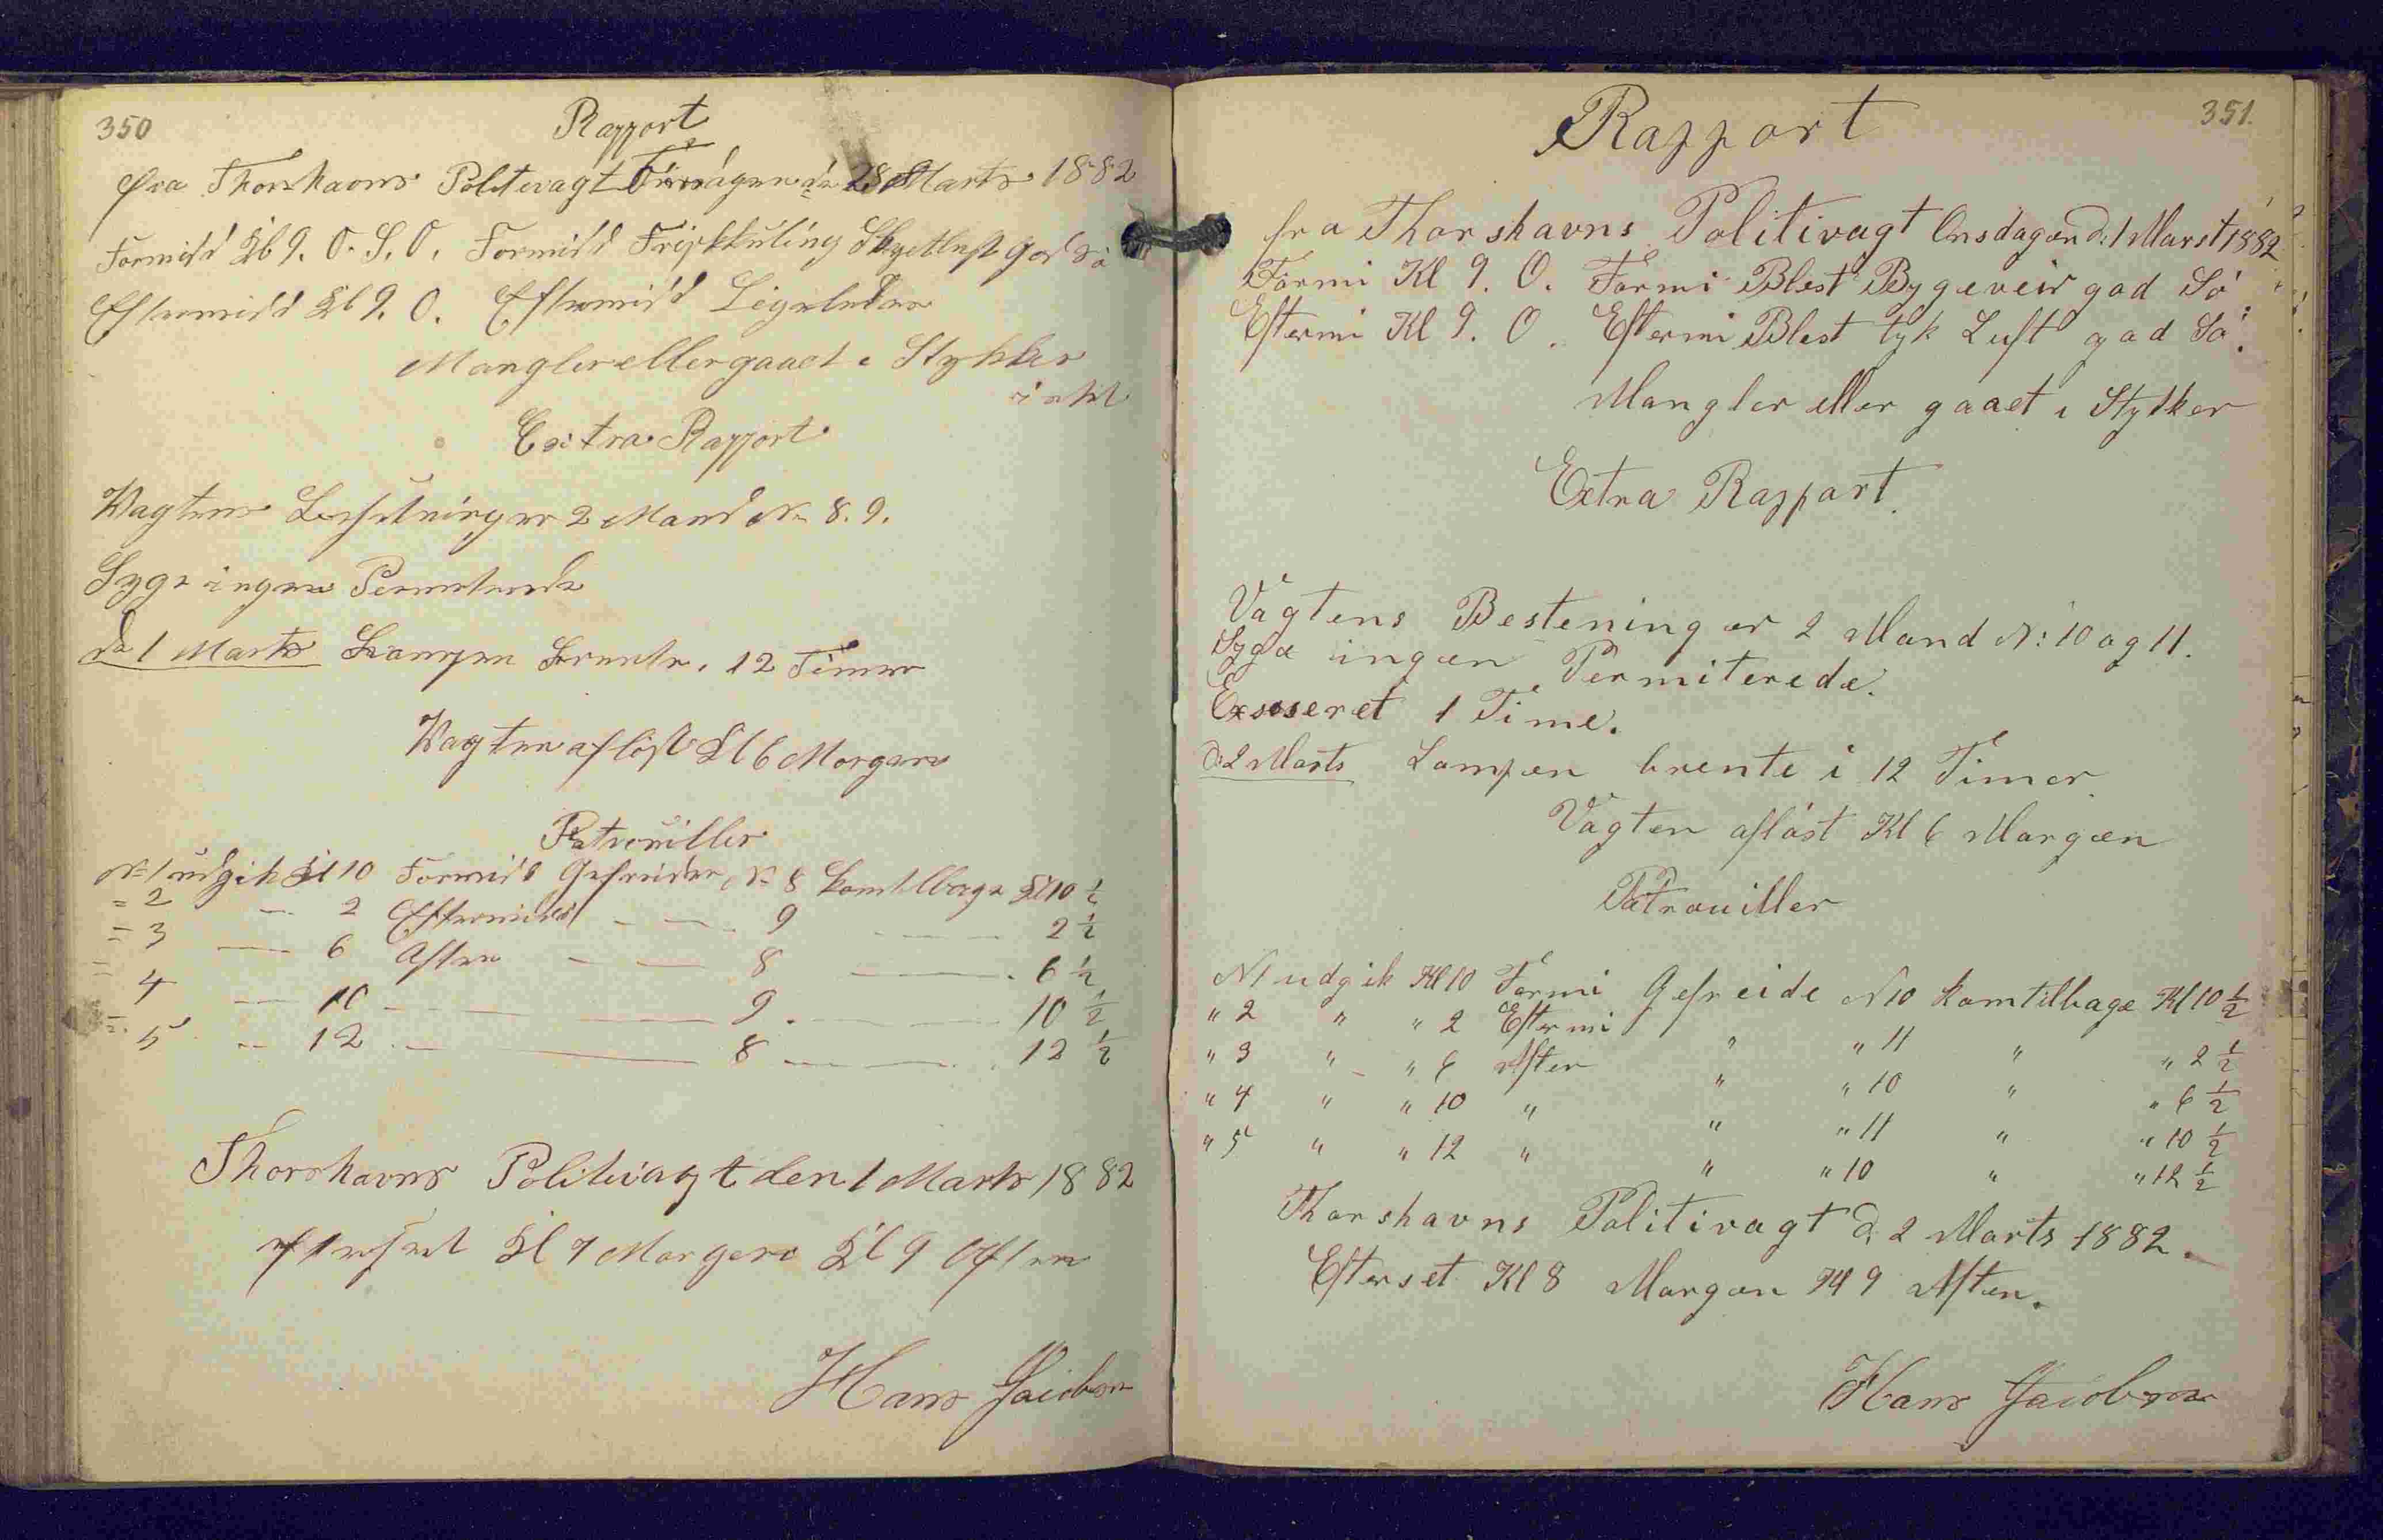 350
Rapport
fra Thorshavns Politivagt Tirsdagen dn 28 Marts 1882
Formidd Kl 9. O. S. O. Formidd Friskkuling Skyetluft god Sö
Eftermidd Kl 9. O. Eftermidd Ligeledes
Mangler eller gaaet i Stykker
intet
Extra Rapport
Vagtens Besetning er 2 Mand No 8. 9.
Syge ingen Permterede
dn 1 Marts Lampen brente. 12 Timer
Vagten aflöst Kl 6 Morgen
Patrouiller
No 1 udgik Kl 10 Formidd Gefreider No 8 kom tilbage Kl 10 ½
= 2 — 2 Eftermidd — — 9 — — 2 ½
= 3 — 6 Aften — — 8 — . 6 ½
= 4 — 10 — — 9 . — — 10 ½
= 5 — 12 — — 8 — — 12 ½
Thorshavns Politivagt den 1 Marts 1882
efterset Kl 7 Morgen Kl 9 Aften
Hans Jacobsen
351.
Rapport
fra Thorshavns Politivagt Onsdagen d: 1 Marst 1882
Formi Kl 9. O. Formi Blest Bygeveir god Sö
Eftermi Kl 9. O. Eftermi Blest tyk Luft god Sö.
Mangler eller gaaet i Stykker
Extra Rapport.
Vagtens Bestening er 2 Mand No: 10 og 11.
Syge ingen Permiterede.
Exsoseret 1 Time.
d: 2 Marts Lampen brente i 12 Timer
Vagten aflöst Kl 6 Morgen
Patrouiller
N 1 udgik Kl 10 Formi Gefreide N 10 kom tilbage Kl 10 ½
" 2 " " 2 Eftermi " " 11 " " 2 ½
" 3 " " 6 Aften " " 10 " " 6 ½
" 4 " " 10 " " " 11 " " 10 ½
" 5 " " 12 " " " 10 " " 12 ½
Thorshavns Politivagt d. 2 Marts 1882.
Efterset Kl 8 Morgen Kl 9 Aften.
Hans Jacobsen